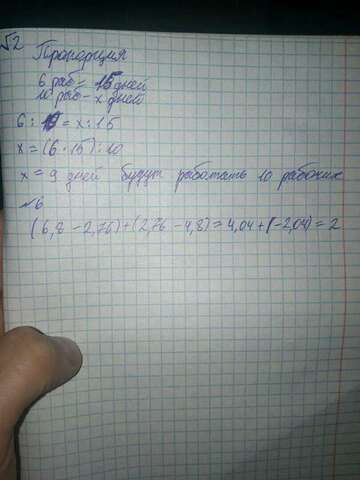 √2
Пропорция
6 раб - 15 дней
10 раб - x дней
6 : 10 = x : 15
x = (6 · 15) : 10
x = 9 дней будут работать 10 рабочих
№6
(6,8 - 2,76) + (2,76 - 4,8) = 4,04 + (-2,04) = 2